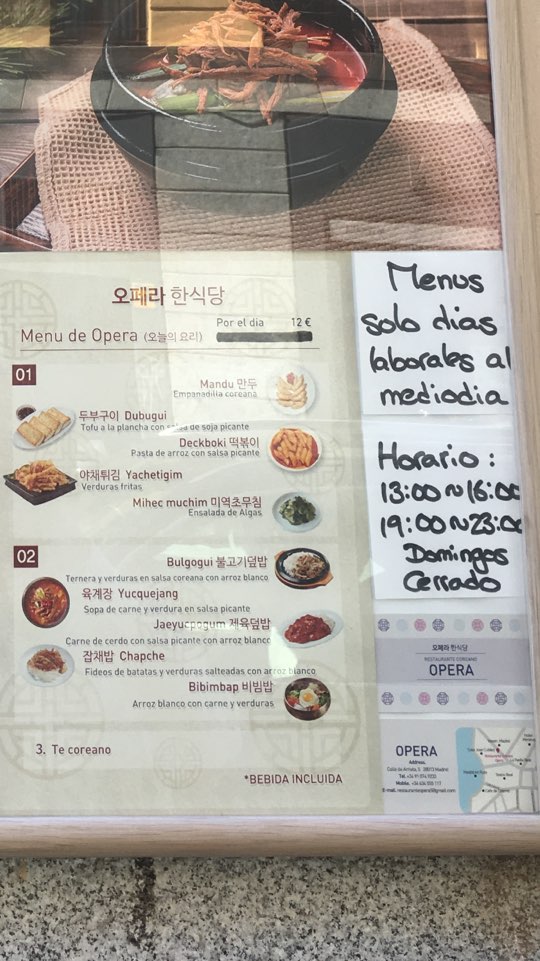 오페라 한식당
Menu de Opera (오늘의 요리)
Por el dia 12 €
01
Mandu 만두
Empanadilla coreana
두부구이 Dubugui
Tofu a la plancha con salsa de soja picante
Deckboki 떡볶이
Pasta de arroz con salsa picante
야채튀김 Yachetigim
Verduras fritas
Mihec muchim 미역초무침
Ensalada de Algas
02
Bulgogui 불고기덮밥
Ternera y verduras en salsa coreana con arroz blanco
육계장 Yucquejang
Sopa de carne y verdura en salsa picante
Jaeyucpogum 제육덮밥
Carne de cerdo con salsa picante con arroz blanco
잡채밥 Chapche
Fideos de batatas y verduras salteadas con arroz blanco
Bibimbap 비빔밥
Arroz blanco con carne y verduras
3. Te coreano
*BEBIDA INCLUIDA
Menus
solo dias
laborales al
mediodia
Horario :
13:00~16:00
19:00~23:00
Domingos
Cerrado
오페라 한식당
RESTAURANTE COREANO
OPERA
OPERA
Address.
Calle de Arrieta, 28013 Madrid